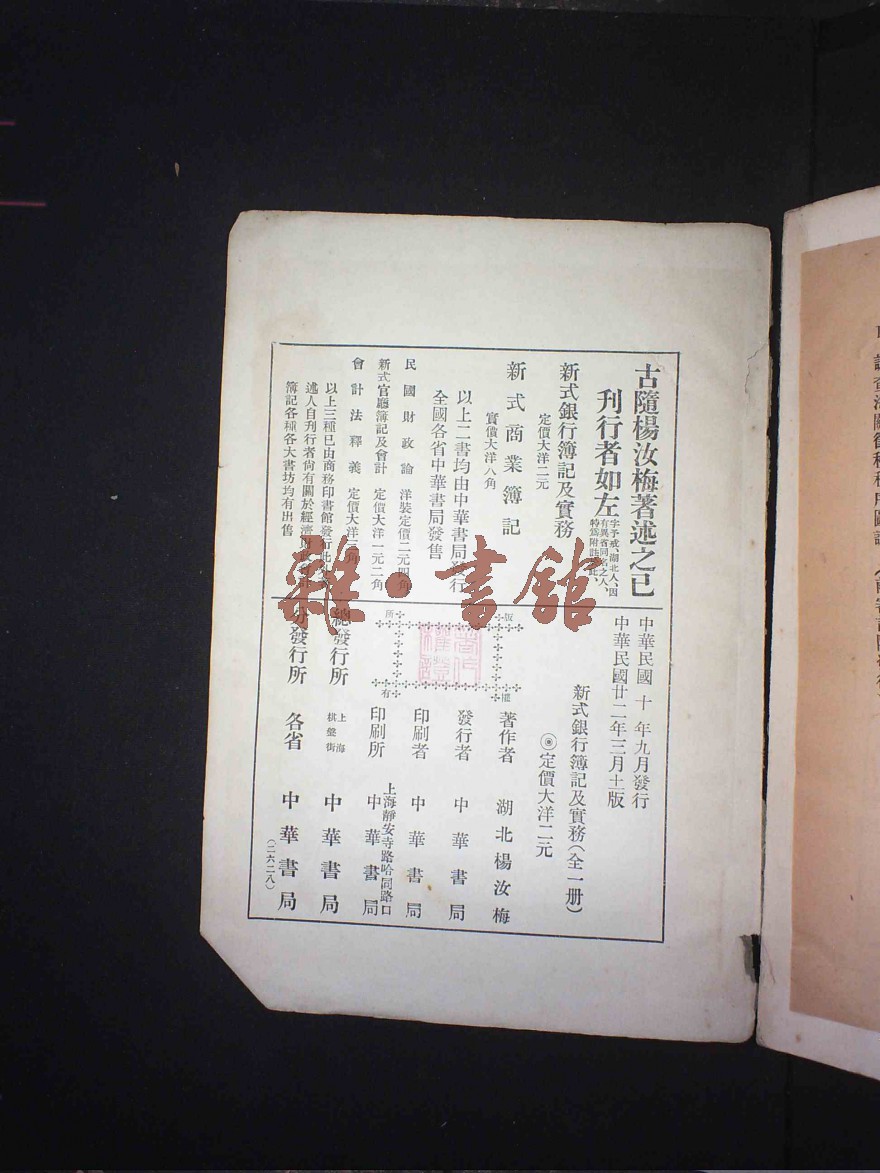 古隨楊汝梅著述之已
刊行者如左
字予戒、湖北人、因
有異省同名之人、
特爲附註
新式銀行簿記及實務
定價大洋二元
新式商業簿記
實價大洋八角
以上二書均由中華書局發行
全國各省中華書局發售
民國財政論 洋裝定價二元四角
新式官廳簿記及會計 定價大洋一元二角
會計法釋義 定價大洋
以上三種已由商務印書館發行
述人自刊行者尙有關於經濟
簿記各種各大書坊均有出售
中華民國十年九月發行
中華民國廿二年三月十一版
新式銀行簿記及實務(全一册)
◉定價大洋二元
版
權
所
有
著作者 湖北楊汝梅
發行者 中華書局
印刷者 中華書局
印刷所 上海靜安寺路哈同路口
中華書局
總發行所 上海棋盤街 中華書局
分發行所 各省 中華書局
(二六二八)
雜·書館